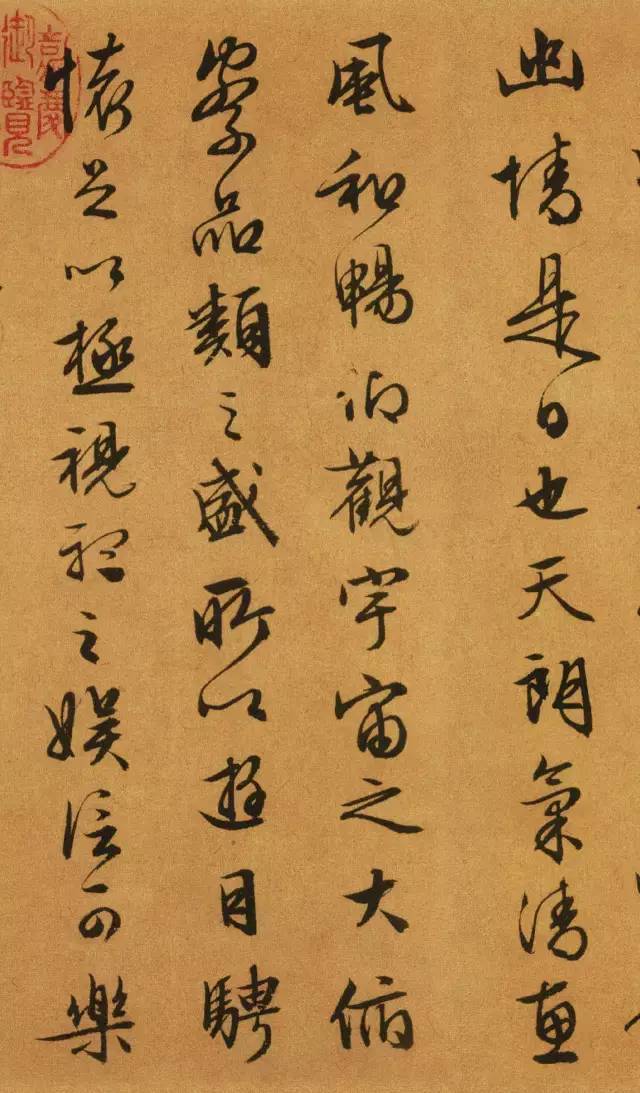 幽情是日也天朗氣清惠
風和暢仰觀宇宙之大俯
察品類之盛所以遊目騁
懷足以極視聽之娛信可樂
嘉慶
御覽